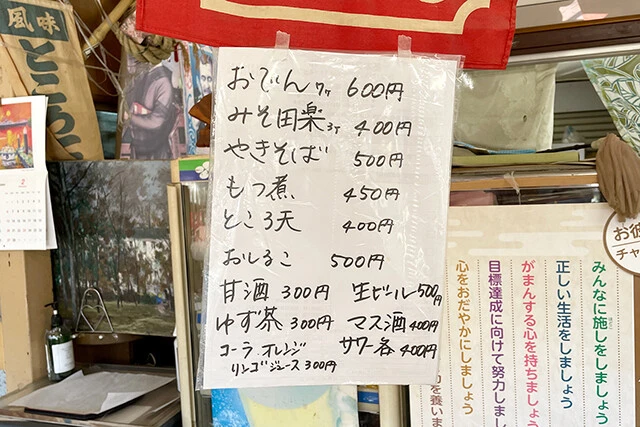 おでん 7ケ 600円
みそ田楽 3ケ 400円
やきそば 500円
もつ煮 450円
ところ天 400円
おしるこ 500円
甘酒 300円 生ビール 500円
ゆず茶 300円 マス酒 400円
コーラ オレンジ サワー各 400円
リンゴジュース 300円
風味
ところ
2
お彼
チャ
みんなに施しをしましょう
正しい生活をしましょう
がまんする心を持ちましょう
目標達成に向けて努力しまし
心をおだやかにしましょう
力を養いま